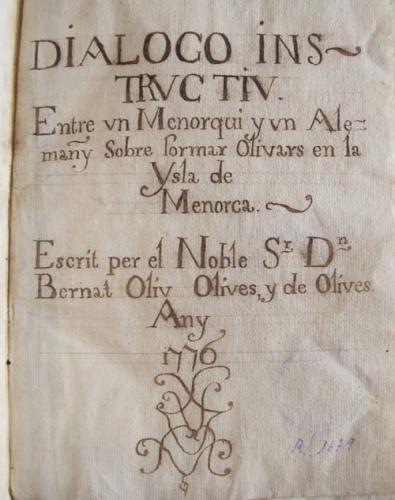 DIALOGO INS~
TRVCTIV.
Entre vn Menorqui y vn Ale=
mañy Sobre formar Olivars en la
Ysla de
Menorca.
Escrit per el Noble Sr. Dn.
Bernat Oliv Olives, y de Olives.
Any
1776
R. 1279